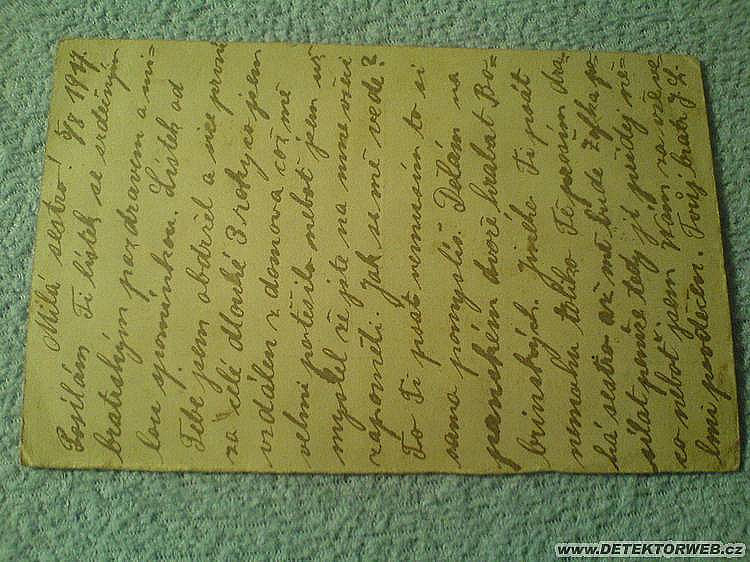 Milá sestro! 9/8 1917.
Posílám Ti lístek se srdečným
bratrským pozdravem a mi-
lou vpomínkou. Lístek od
Tebe jsem obdržel a sice první
za celé dlouhé 3 roky co jsem
vzdálen z domova což mě
velmi potěšilo neboť jsem už
myslel že jste na mne všici
zapoměli. Jak se mě vede?
To Ti psát nemusím to si
sama pomysliš. Dělám na
panském dvoře hrabat Bo-
brinských. Jiného Ti psát
nemohu toliko Tě prosím dra-
há sestro až mě bude Žofka po-
sílat peníze tedy jí přidej ně-
co neboť jsem Vám za vše ve-
lmi povděčen. Tvůj bratr J. L.
www.DETEKTORWEB.cz